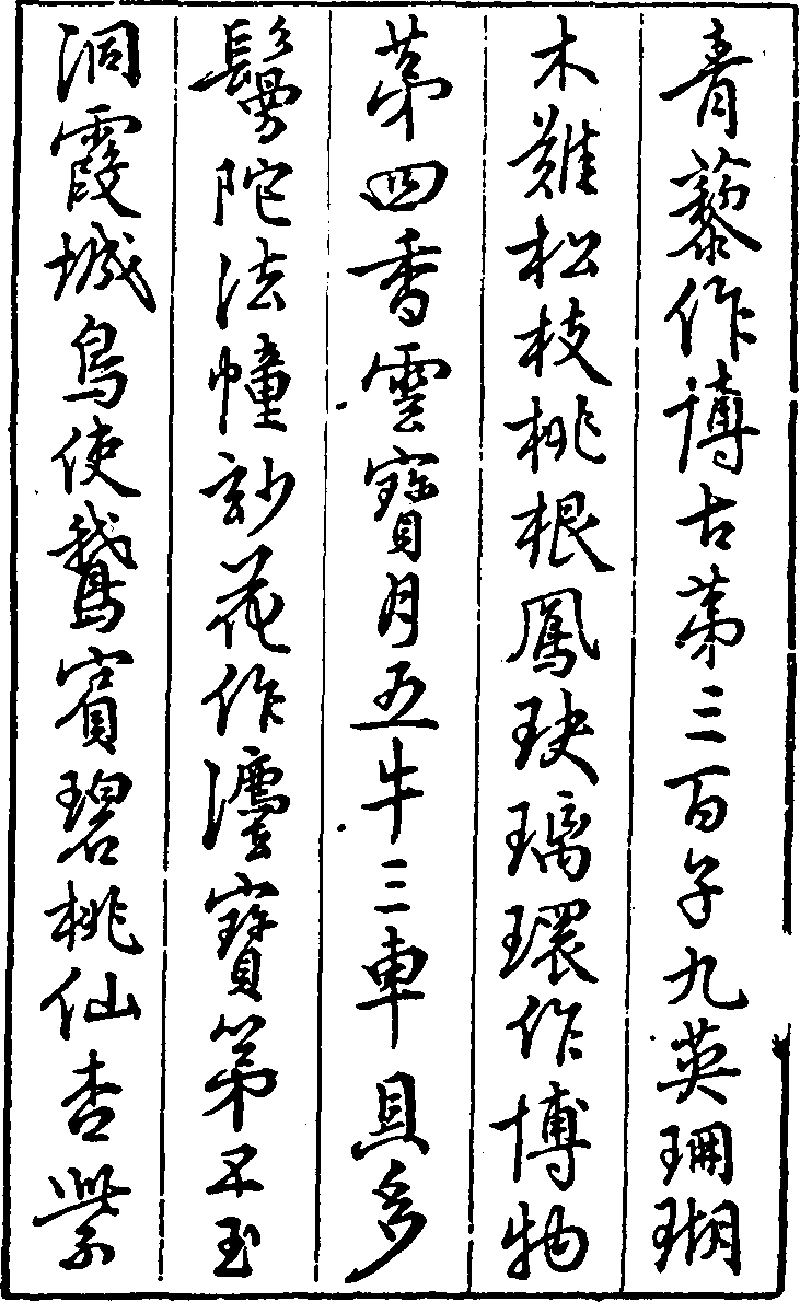 青藜作譚古第三百子九英珊瑚
木難松枝桃根鳳玦璃環作博物
第四香雲寶月五牛三車貝多
鬘陀法幢玅花作灋寶第五玉
洞霞城鳥使鵞賓碧桃仙杏紫